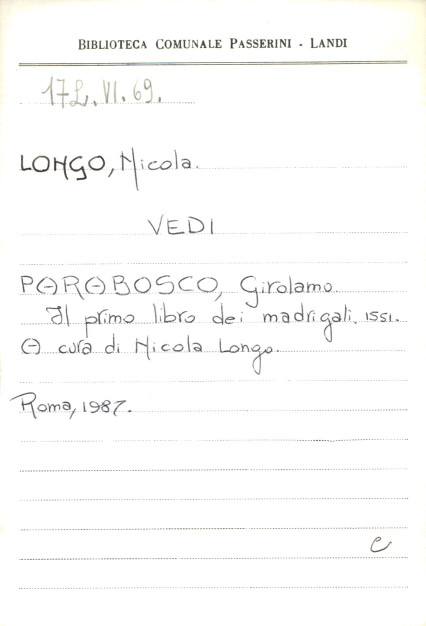 BIBLIOTECA COMUNALE PASSERINI - LANDI
17L.VI.69.
LONGO, Nicola.
VEDI
PARABOSCO, Girolamo.
Il primo libro dei madrigali. 1551.
A cura di Nicola Longo.
Roma, 1987.
e